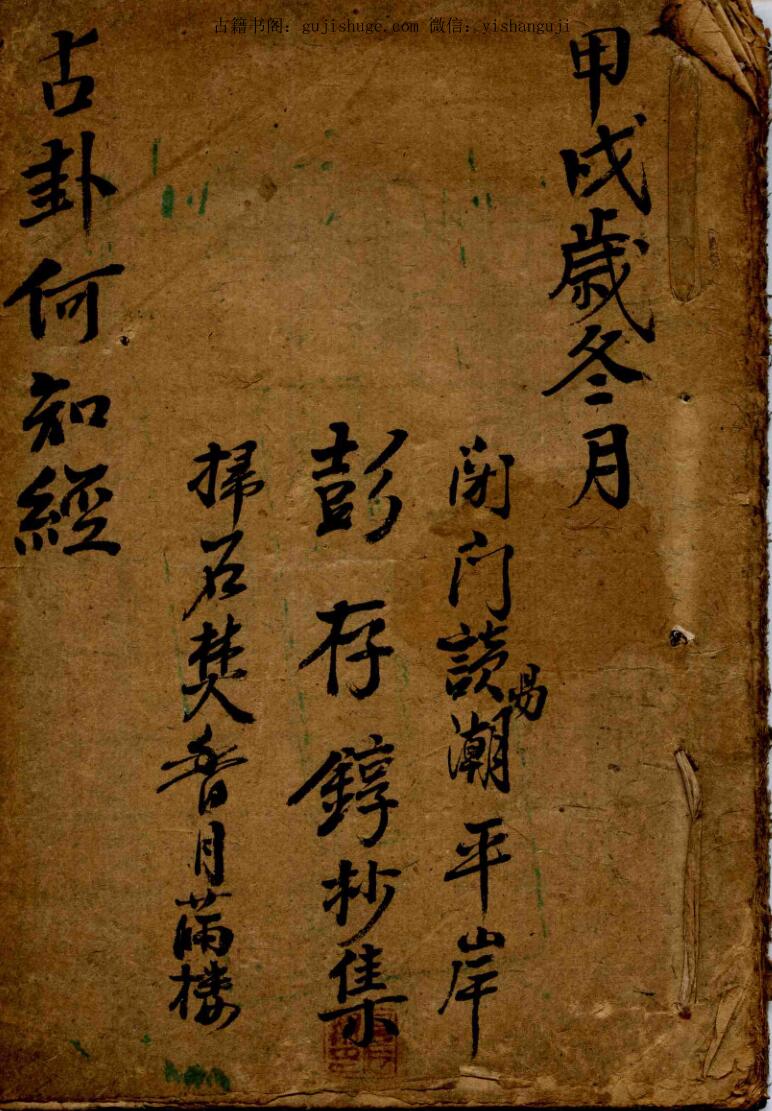 古籍书阁：gujishuge.com 微信：yishanguji
甲戌歳冬月
闭门读易潮平岸
彭存錞抄集
掃石焚香月滿楼
古卦何知經